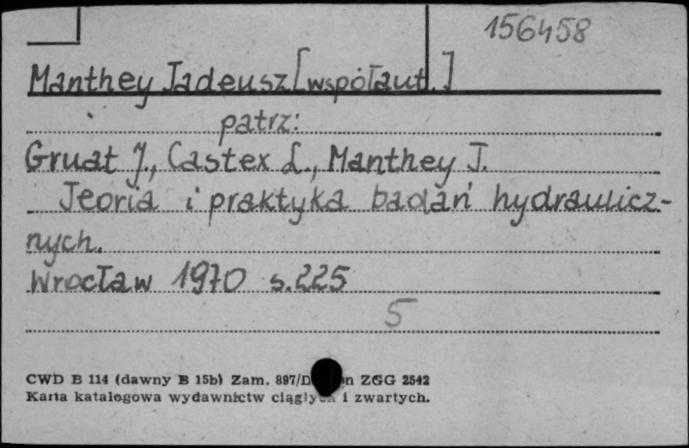 156458
Manthey Tadeusz [współaut.]
patrz:
Gruat J., Castex L., Manthey T.
Teoria i praktyka badań hydraulicz-
nych.
Wrocław 1970 s. 225
5
CWD B 114 (dawny B 15b) Zam. 897/D ZGG 2542
Karta katalogowa wydawnictw ciągłych i zwartych.